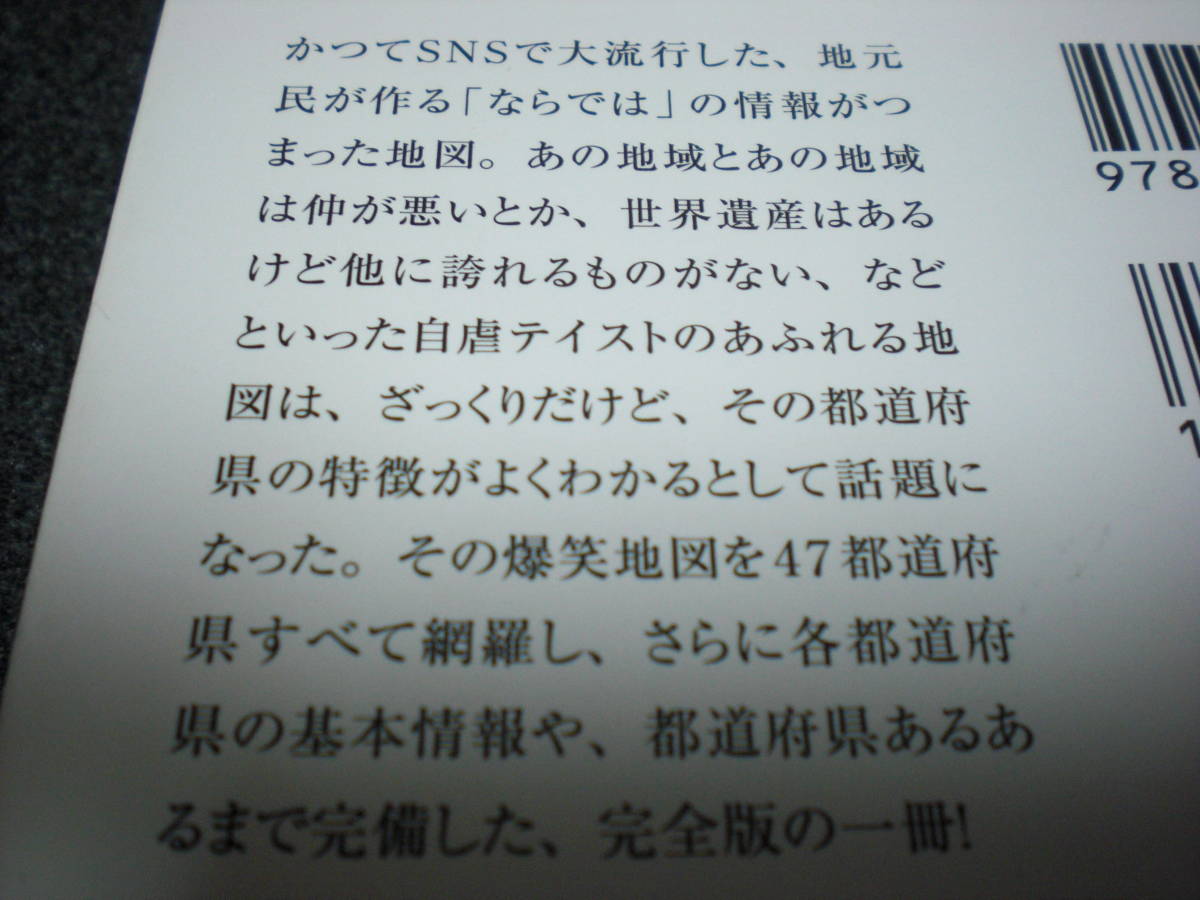 かつてSNSで大流行した、地元
民が作る「ならでは」の情報がつ
まった地図。あの地域とあの地域
は仲が悪いとか、世界遺産はある
けど他に誇れるものがない、など
といった自虐テイストのあふれる地
図は、ざっくりだけど、その都道府
県の特徴がよくわかるとして話題に
なった。その爆笑地図を47都道府
県すべて網羅し、さらに各都道府
県の基本情報や、都道府県あるあ
るまで完備した、完全版の一冊!
978
1